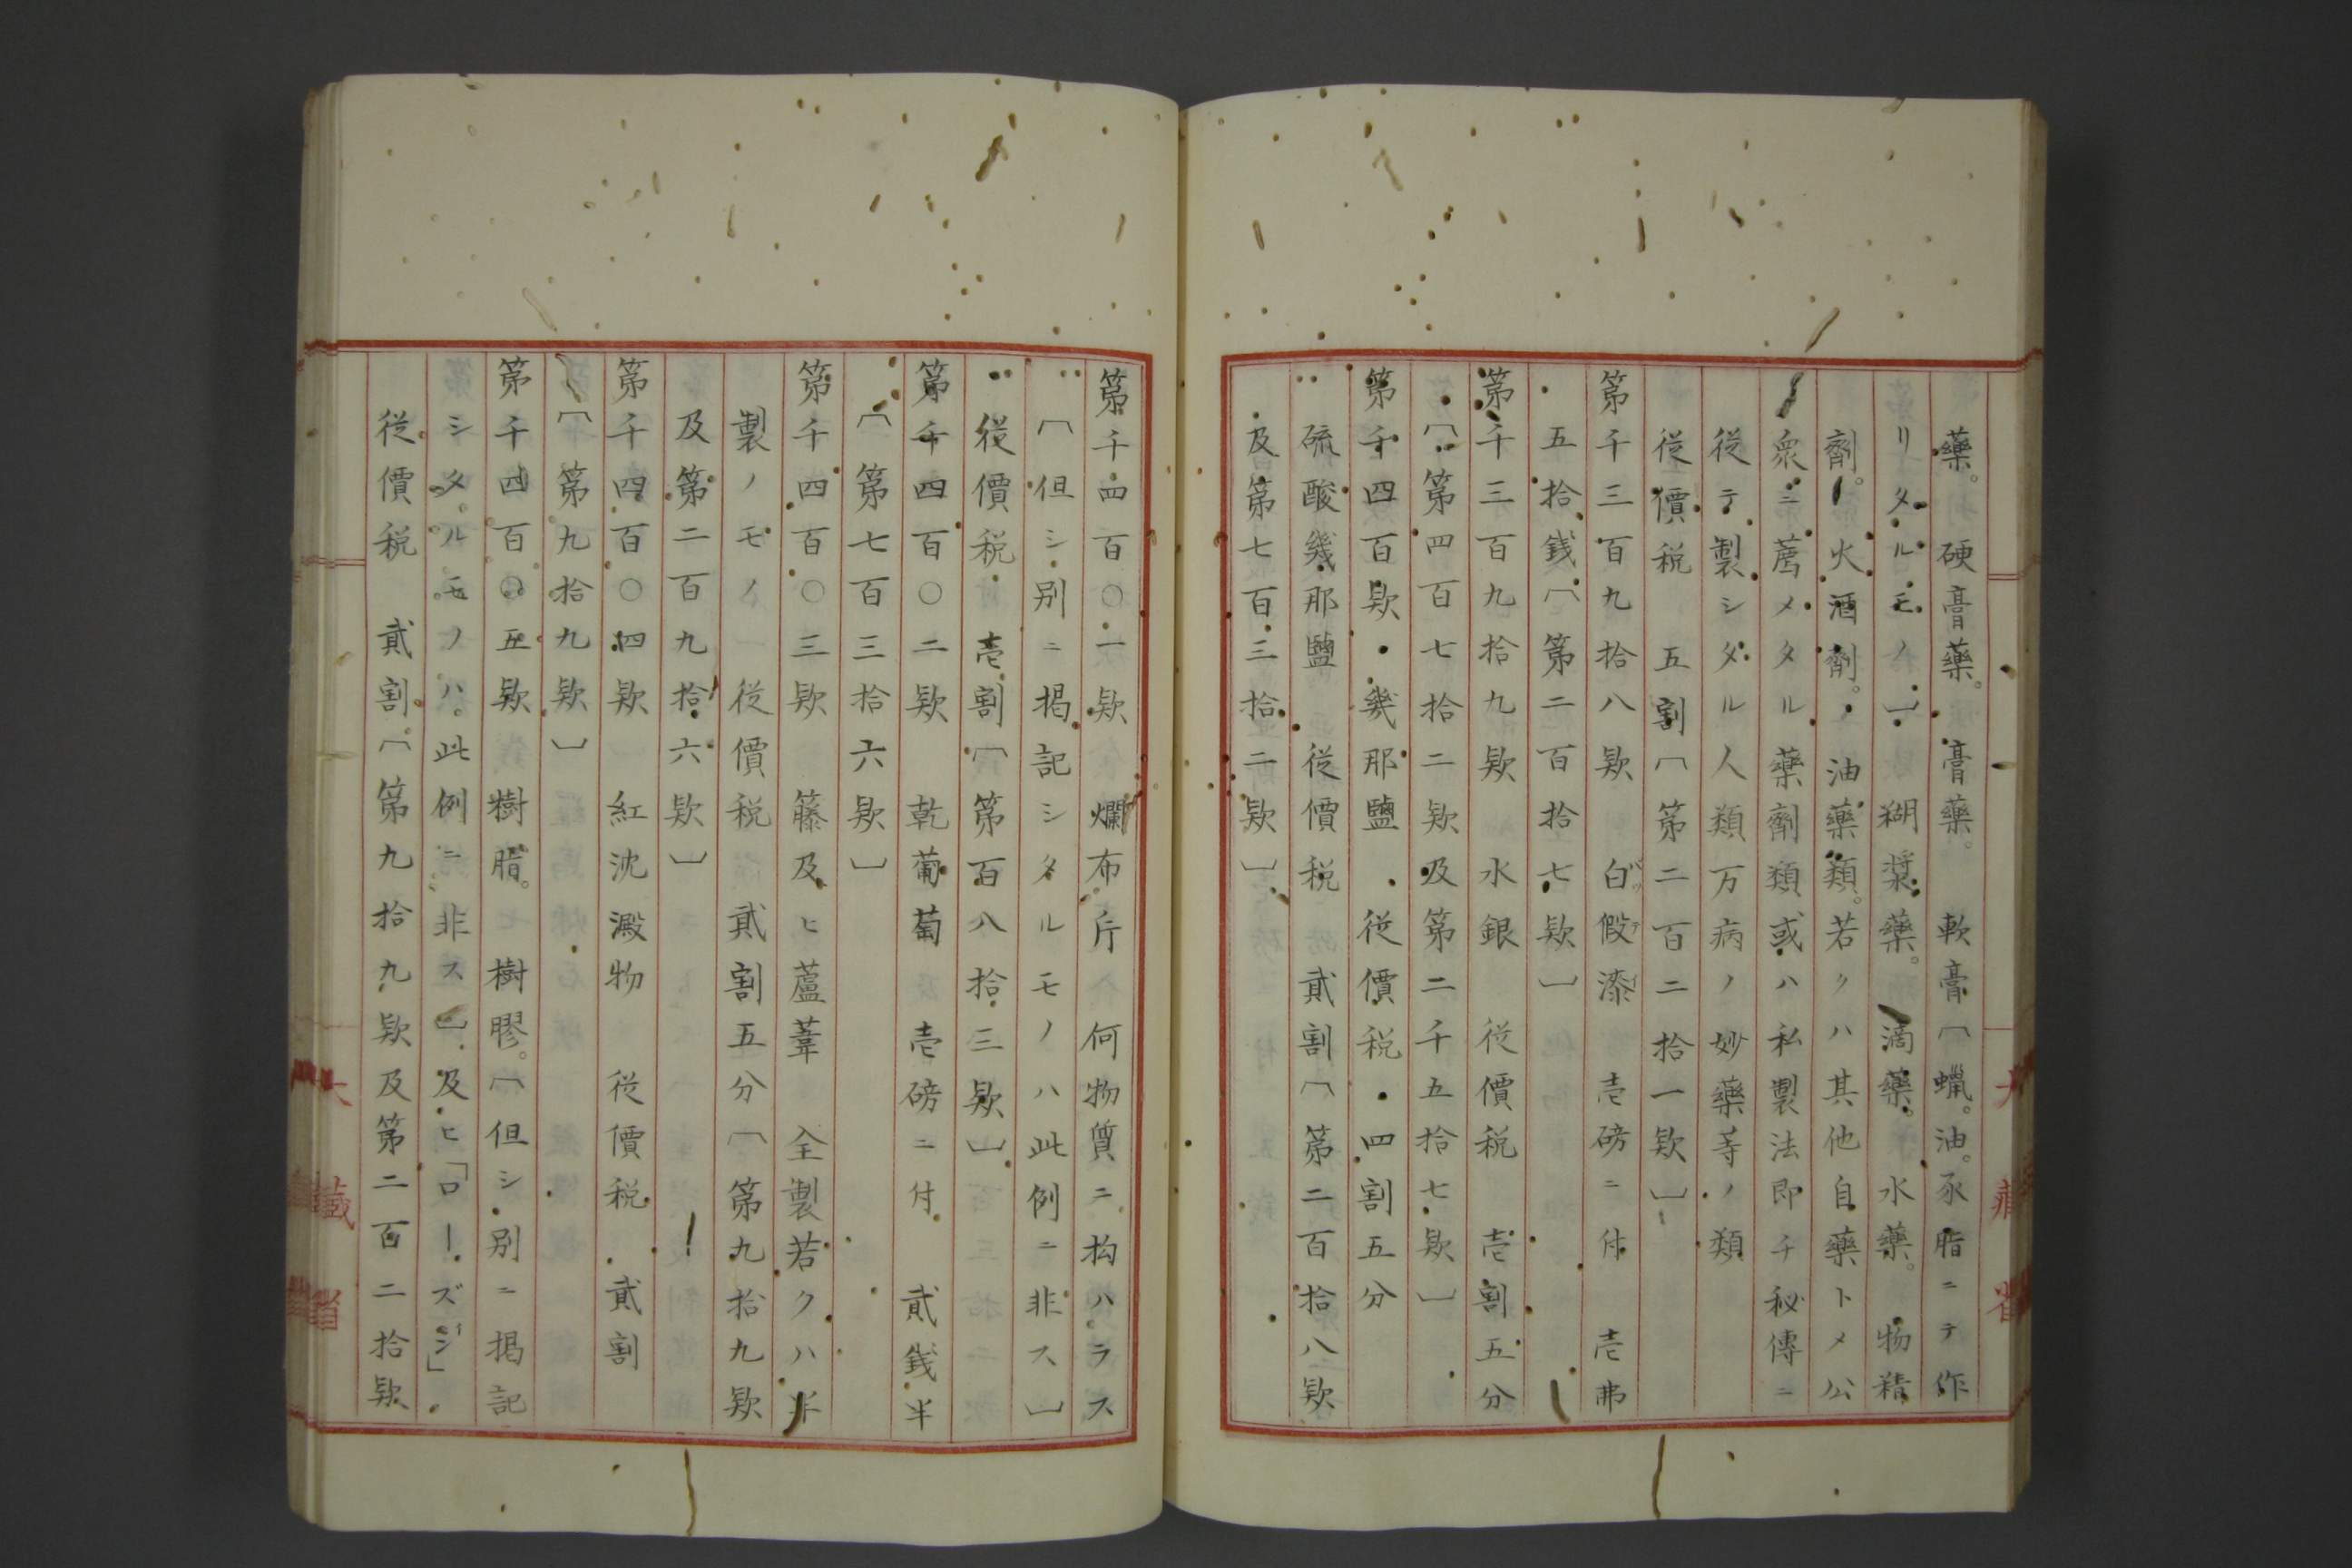 藥。硬膏藥。膏藥。軟膏〔蠟。油。豕脂ニテ作
リタルモノ〕糊漿藥。滴藥。水藥。物精
劑。火酒劑。油藥類。若クハ其他自藥トメ公
衆ニ薦メタル藥劑類或ハ私製法即チ秘傳ニ
從テ製シタル人類万病ノ妙藥等ノ類
從價税 五割〔第二百二拾一欵〕
第千三百九拾八欵 白假漆 壱磅ニ付 壱弗
五拾銭〔第二百拾七欵〕
第千三百九拾九欵 水銀 從價税 壱割五分
〔第四百七拾二欵及第二千五拾七欵〕
第千四百欵 幾那鹽 從價税 四割五分
硫酸幾那鹽 從價税 貳割〔第二百拾八欵
及第七百三拾二欵〕
第千四百〇一欵 爛布斤 何物質ニ抅ハラス
〔但シ別ニ掲記シタルモノハ此例ニ非ス〕
從價税 壱割〔第百八拾三欵〕
第千四百〇二欵 乾葡萄 壱磅ニ付 貳銭半
〔第七百三拾六欵〕
第千四百〇三欵 籐及ヒ蘆葦 全製若クハ半
製ノモノ 從價税 貳割五分〔第九拾九欵
及第二百九拾六欵〕
第千四百〇四欵 紅沈澱物 從價税 貳割
〔第九拾九欵〕
第千四百〇五欵 樹脂。樹膠。〔但シ別ニ掲記
シタルモノハ。此例ニ非ス〕及ヒ「ロージン」
從價税 貳割。〔第九拾九欵及第二百二拾欵
大藏省
大藏省